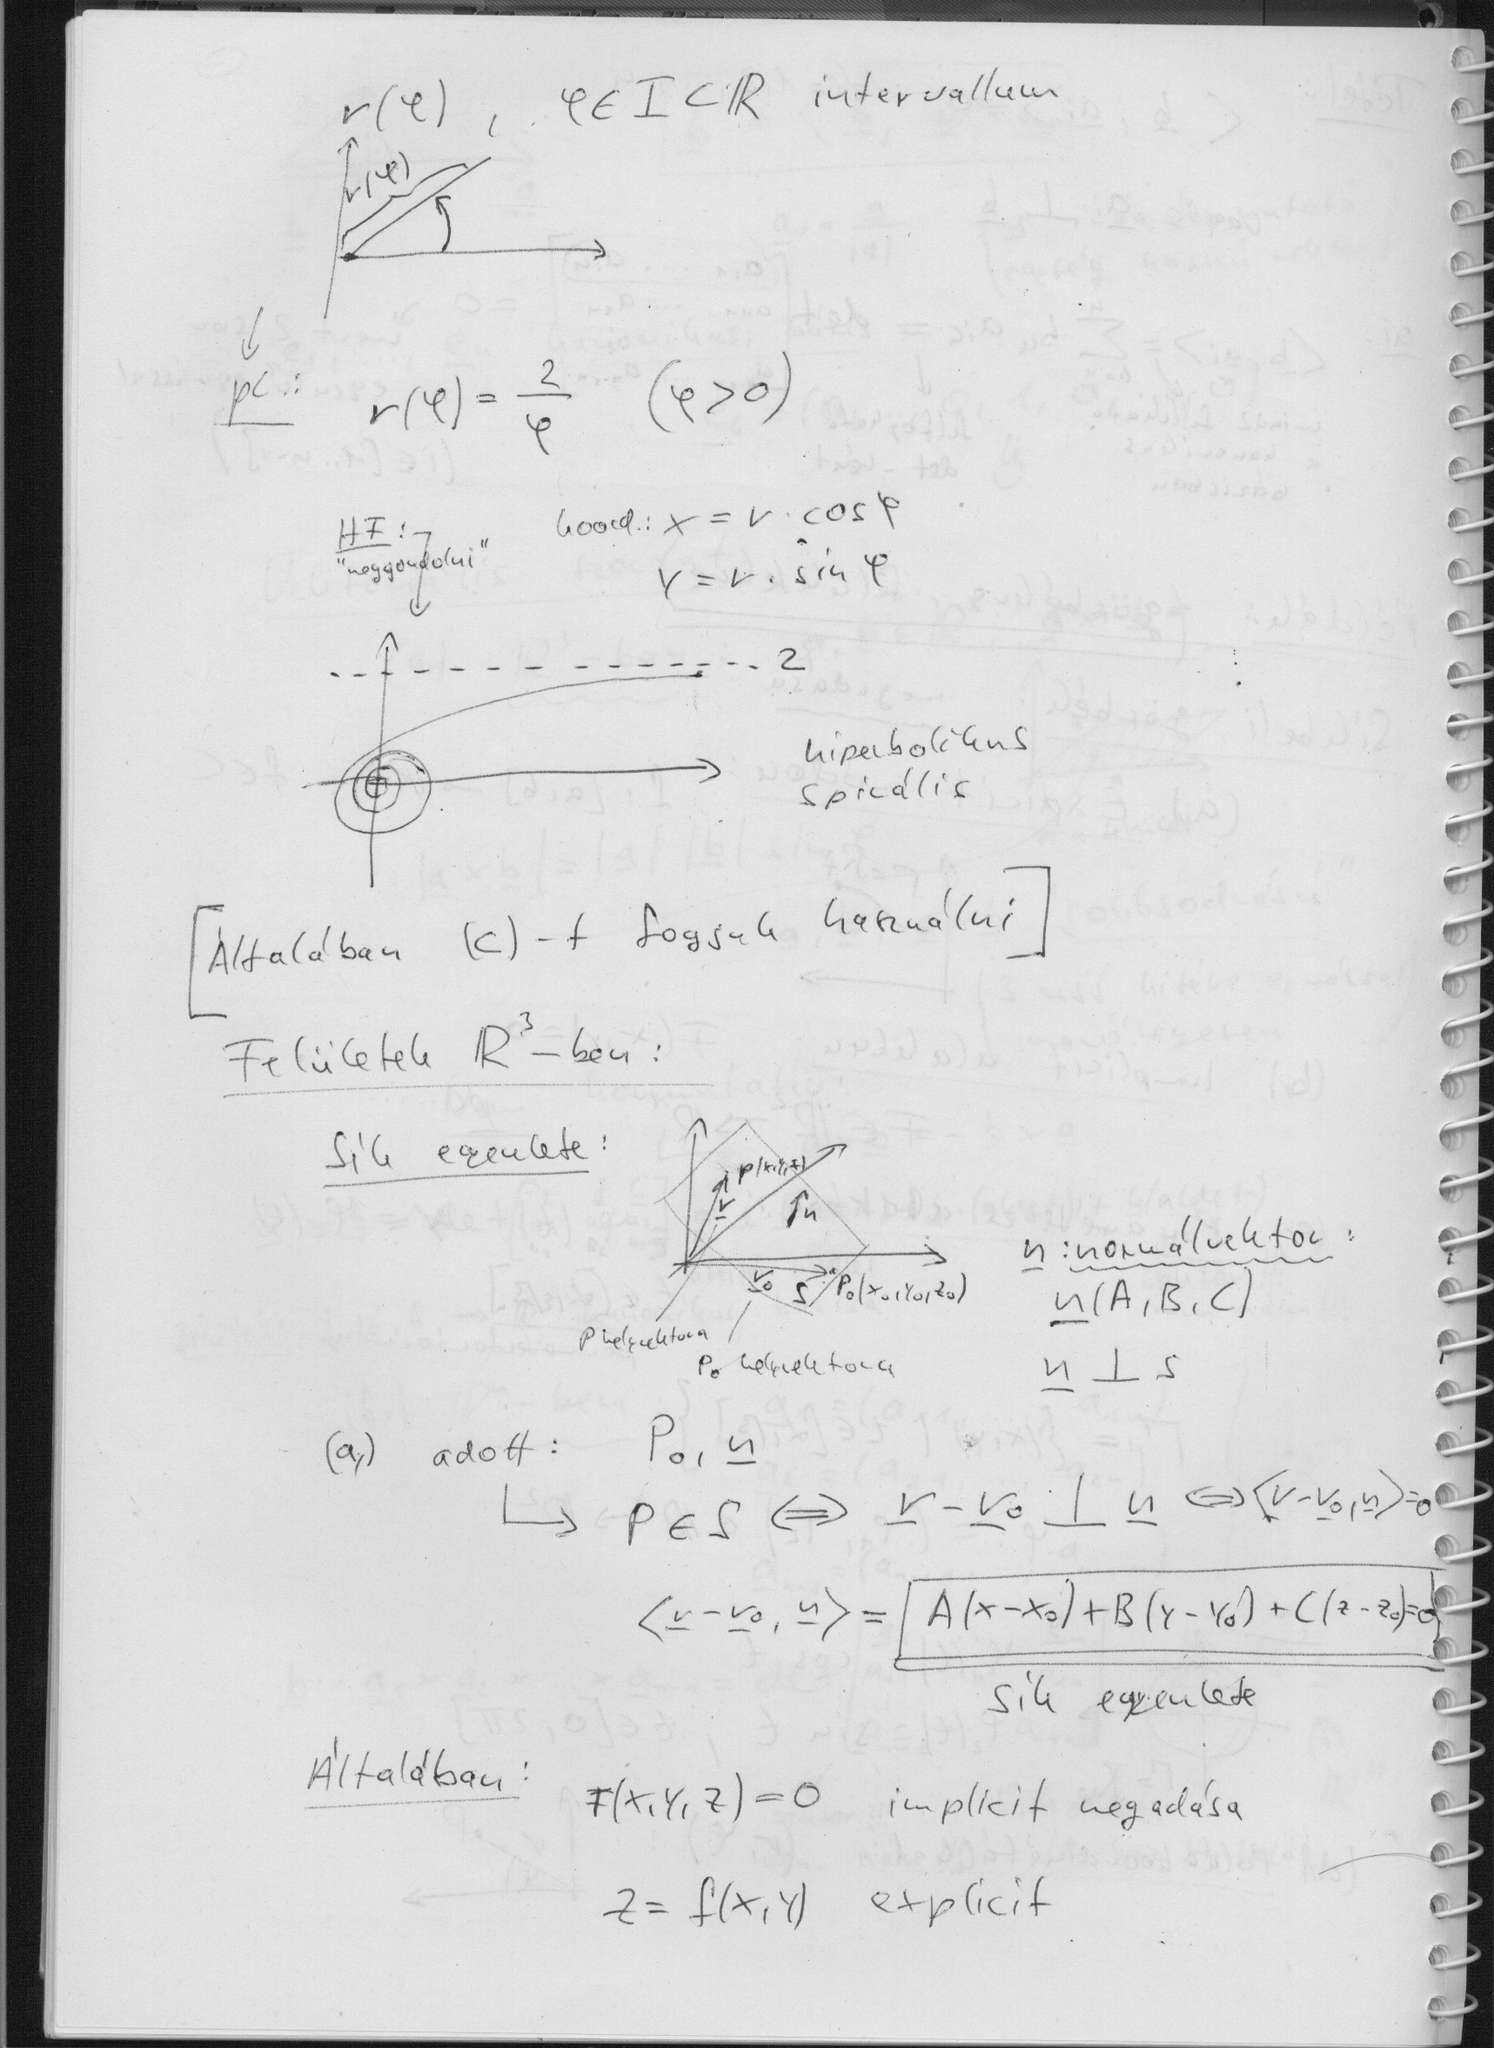 r(φ), φ∈I⊂ℝ intervallum
r(φ)
pl.: r(φ) = 2/φ (φ>0)
HF: koord.: x = r·cosφ
"meggondolni" y = r·sinφ
2
hiperbolikus
spirális
[Általában (c)-t fogjuk használni]
Felületek ℝ³-ben:
Sík egyenlete:
P(x,y,z)
r
n
r₀ S P₀(x₀,y₀,z₀)
n: normálvektor:
n(A,B,C)
n ⊥ S
P helyvektora
P₀ helyvektora
(a,) adott: P₀, n
P∈S ⇔ r-r₀ ⊥ n ⇔ ⟨r-r₀,n⟩=0
⟨r-r₀, n⟩ = A(x-x₀)+B(y-y₀)+C(z-z₀)=0
Sík egyenlete
Általában: F(x,y,z)=0 implicit megadása
z = f(x,y) explicit